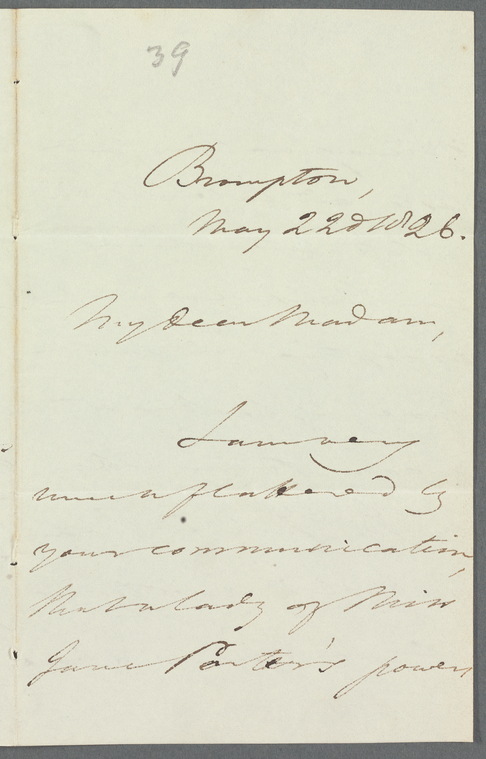 39
Brompton,
May 22d 1826.
My dear Madam,
I am very
much flattered by
your communication,
that a lady of Miss
Jane Porter's powers